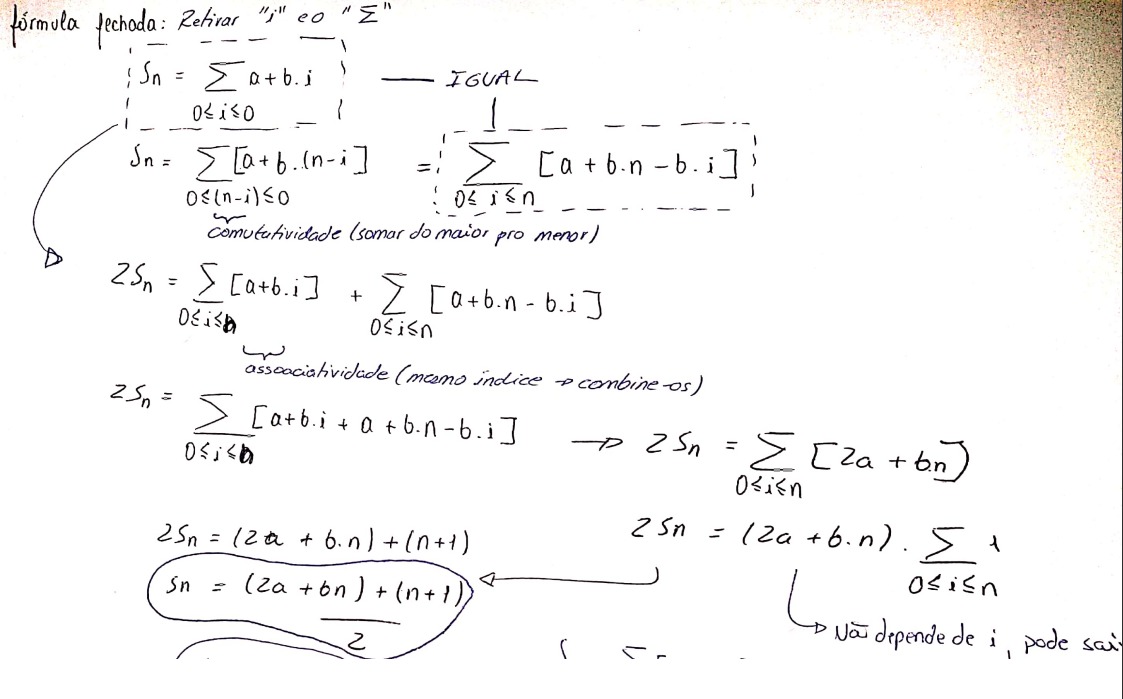 fórmula fechada: Retirar "i" e o "Σ"
Sn = Σ a + b.i — IGUAL
0≤i≤0
Sn = Σ [a+b.(n-i] = Σ [a + b.n - b.i]
0≤(n-i)≤0 0≤ i≤n
comutatividade (somar do maior pro menor)
2Sn = Σ [a+b.i] + Σ [a+b.n - b.i]
0≤i≤n 0≤i≤n
assoaciatividade (mesmo índice → combine-os)
2Sn = Σ [a+b.i + a + b.n - b.i] → 2Sn = Σ [2a + b.n)
0≤i≤n 0≤i≤n
2Sn = (2a + b.n) + (n+1) 2Sn = (2a + b.n) . Σ 1
0≤i≤n
Sn = (2a + bn) + (n+1)
2
Não depende de i, pode sai